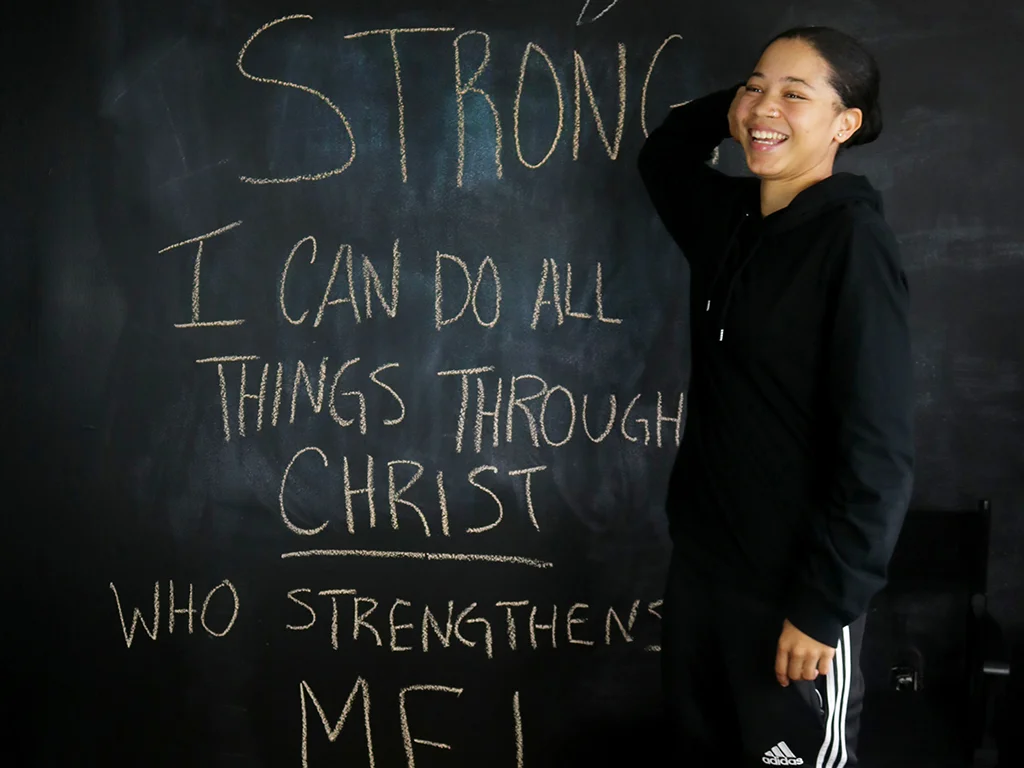 STRONG
I CAN DO ALL
THINGS THROUGH
CHRIST
WHO STRENGTHENS
ME!
adidas